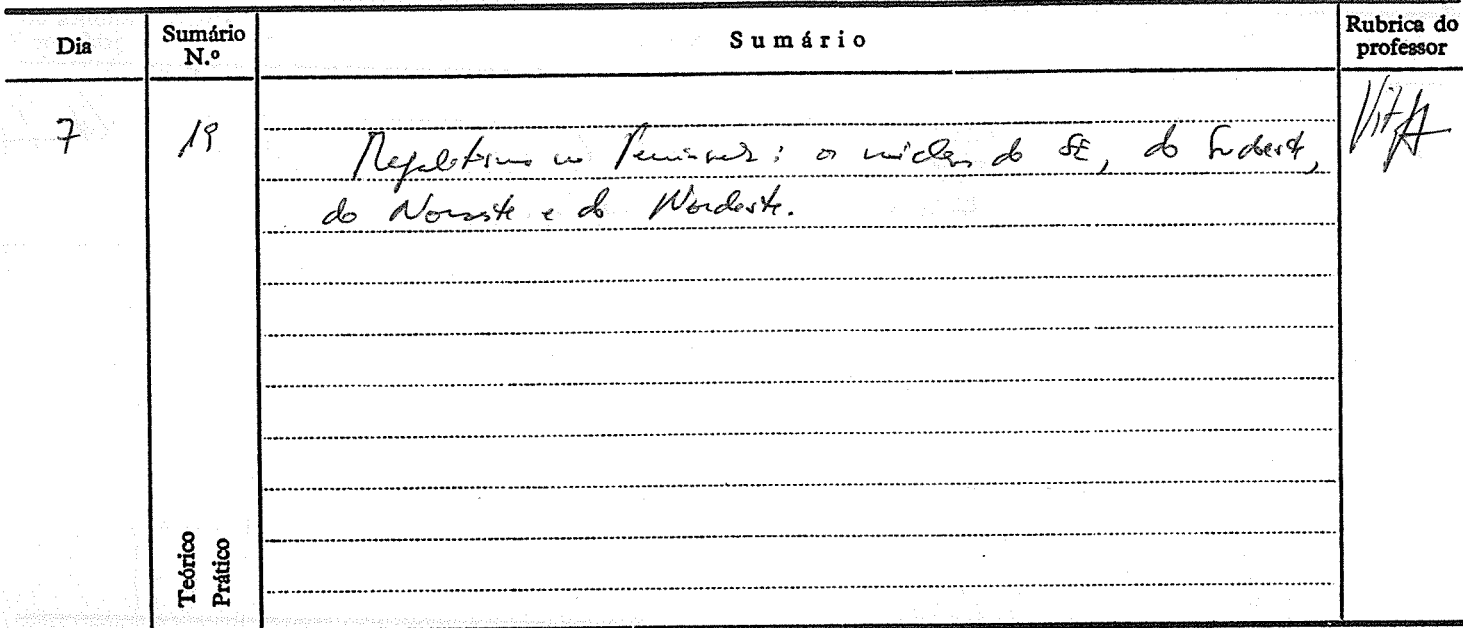 Dia
Sumário N.º
Sumário
Rubrica do professor
7
19
Megalitismo na Península: os núcleos do SE, do Sudoeste,
do Noroeste e do Nordeste.
Teórico
Prático